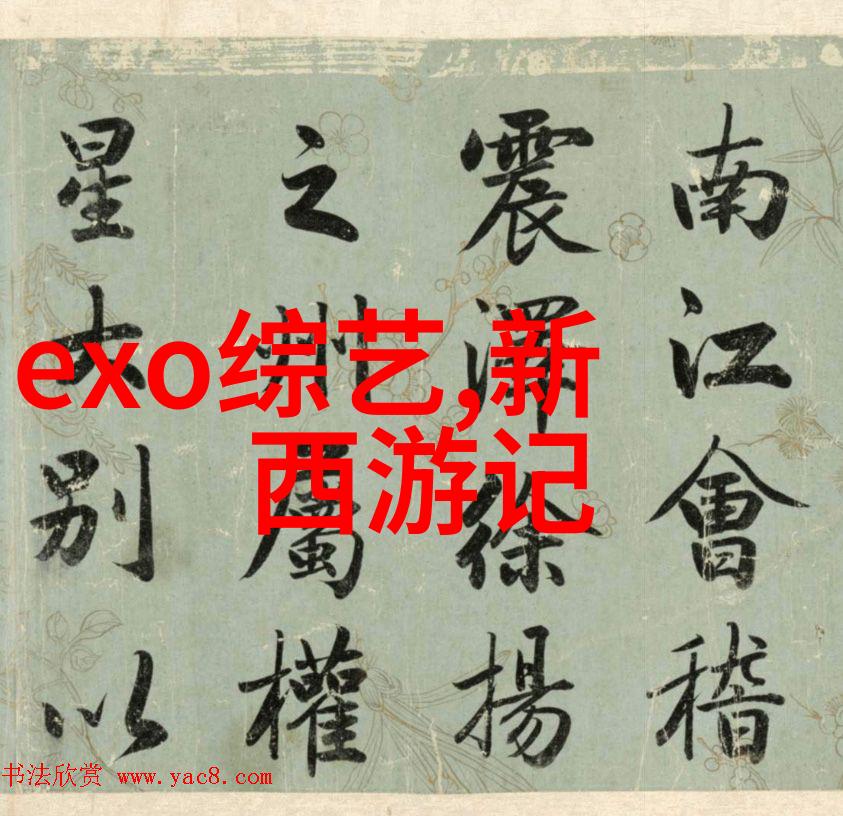 南江會稽
震澤徐揚
之州屬權
星別以
exo综艺,新
西游记
书法欣赏 www.yac8.com